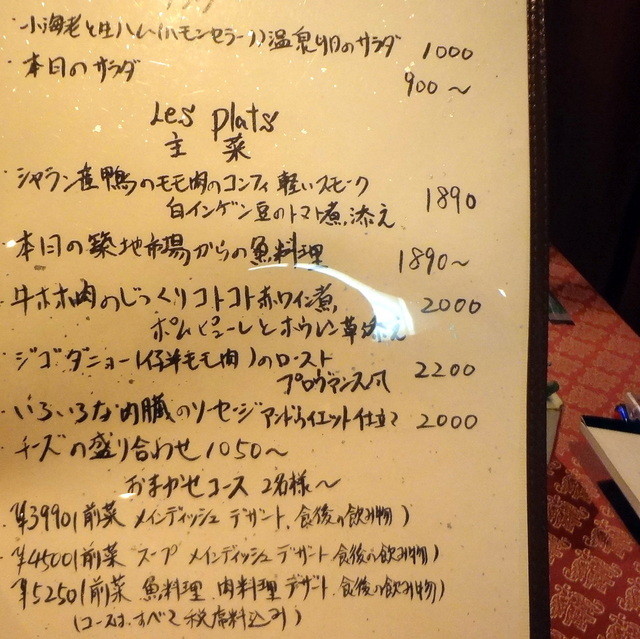 ・小海老と生ハム(ハモンセラーノ)温泉卵のサラダ 1000
・本日のサラダ 900～
Les plats
主 菜
・シャラン産鴨のモモ肉のコンフィ 軽いスモーク
白インゲン豆のトマト煮添え 1890
・本日の築地市場からの魚料理 1890～
・牛ホホ肉のじっくりコトコト赤ワイン煮 2000
ポムピューレとホウレン草添え
・ジゴダニョー(仔羊モモ肉)のロースト
プロヴァンス風 2200
・いろいろな内臓のソーセージアンドゥイエット仕立て 2000
・チーズの盛り合わせ 1050～
おまかせコース 2名様～
・¥3990(前菜 メインディッシュ デザート 食後の飲み物)
・¥4500(前菜 スープ メインディッシュ デザート 食後の飲み物)
・¥5250(前菜 魚料理 肉料理 デザート 食後の飲み物)
(コースはすべて税席料込み)